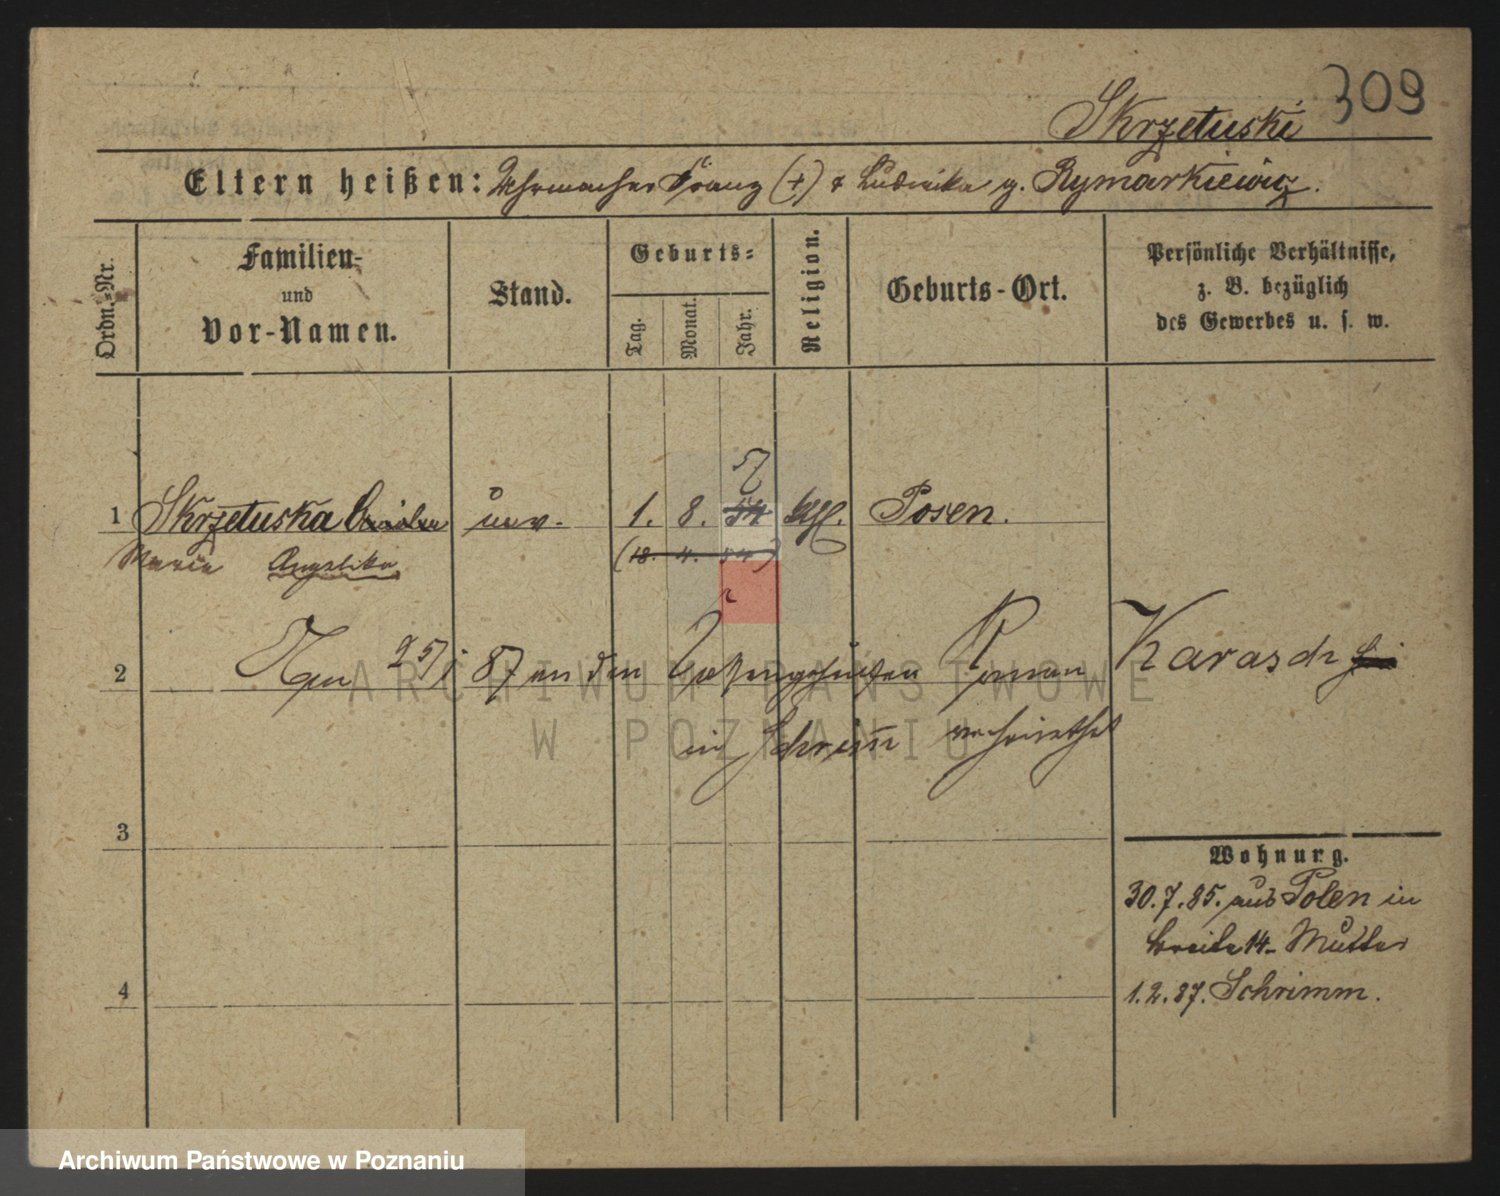 309
Skrzetuski
Eltern heißen: Uhrmacher Franz (+) & Ludwika g. Rymarkiewicz.
Ordn.-Nr.
Familien- und Vor-Namen.
Stand.
Geburts-
Tag. Monat. Jahr.
Religion.
Geburts-Ort.
Persönliche Verhältnisse,
z. B. bezüglich
des Gewerbes u. s. w.
57
1 Skrzetuska unv. 1. 8. 54 kth. Posen.
Maria Angelika (18. 4. 54)
2 25/ 87 an den Roman Karasch
in Schrimm verheirathet
3
Wohnung.
30.7.85. aus Polen in
Breite 14 - Mutter
4
1.2.87. Schrimm.
ARCHIWUM PAŃSTWOWE
W POZNANIU
Archiwum Państwowe w Poznaniu